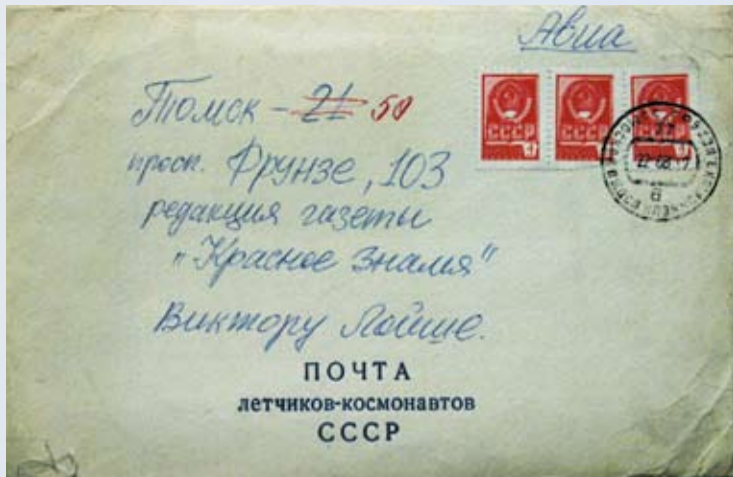 Авиа
Томск - 21 50
просп. Фрунзе, 103
редакция газеты
"Красное знамя"
Виктору Лойше.
СССР 4
СССР
СССР
ПОЧТА
летчиков-космонавтов
СССР